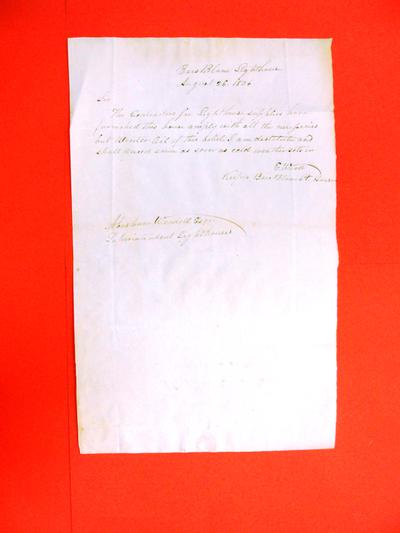 Bois Blanc Lighthouse
August 26. 185
Sir
The Contractor for Light house supplies have
furnished this house amply with all the necessaries
but Winter Oil of this article I am destitute and
shall need some as soon as cold weather sets in
Keeper Bois Blanc Lt House
Abraham Wendell Esqr
Superintendent Light Houses